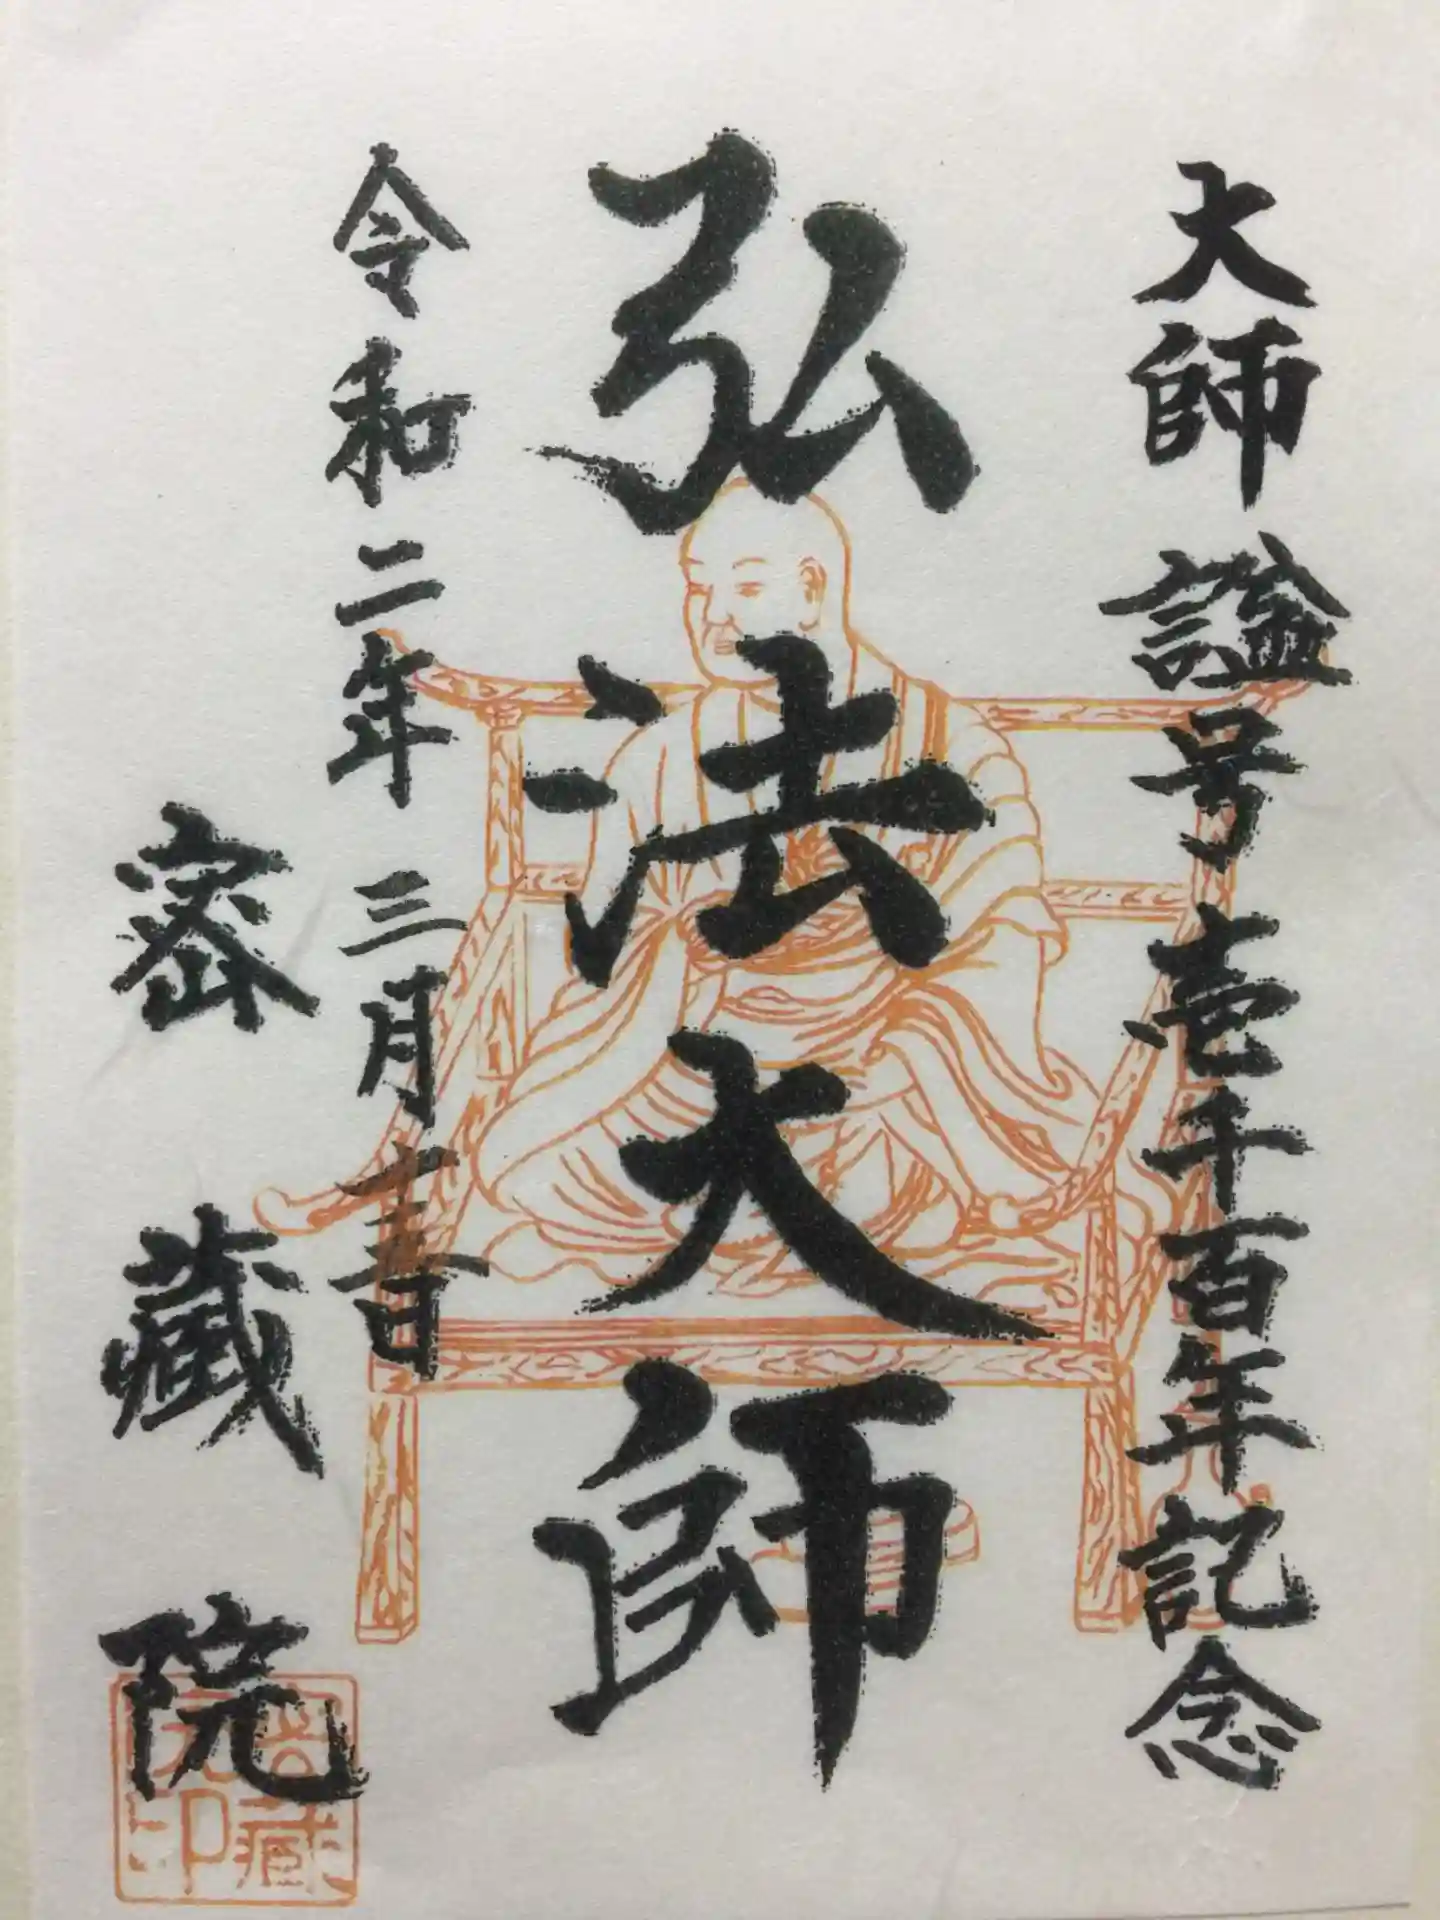 大師諡号壱千百年記念
弘法大師
令和二年 三月十三日
密藏院